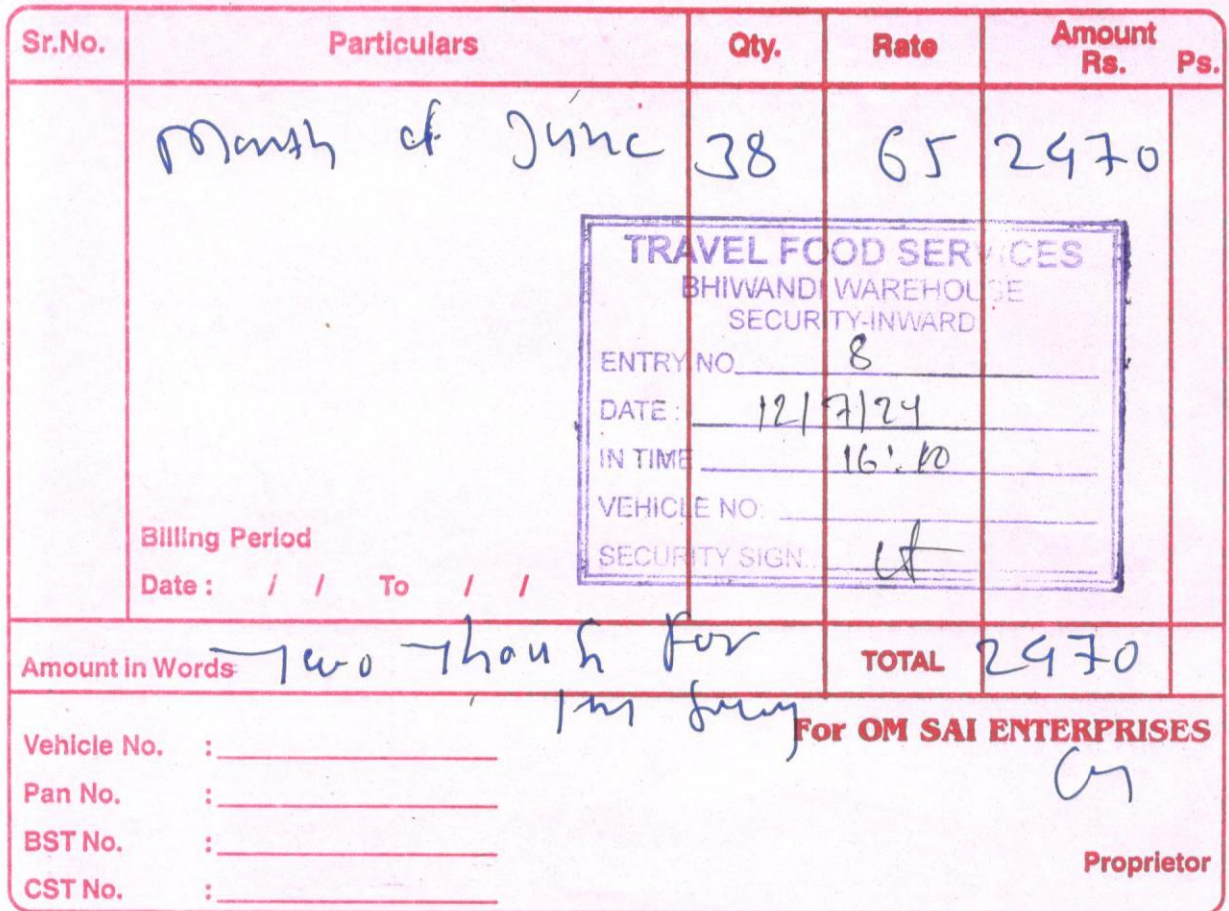 Sr.No. Particulars Qty. Rate Amount Rs. Ps.
Month of June 38 65 2470
TRAVEL FOOD SERVICES
BHIWANDI WAREHOUSE
SECURITY-INWARD
ENTRY NO. 8
DATE : 12/7/24
IN TIME 16:10
VEHICLE NO:
SECURITY SIGN.
Billing Period
Date : / / To / /
Amount in Words Two Thou TOTAL 2470
For OM SAI ENTERPRISES
Vehicle No. :
Pan No. :
BST No. :
CST No. :
Proprietor